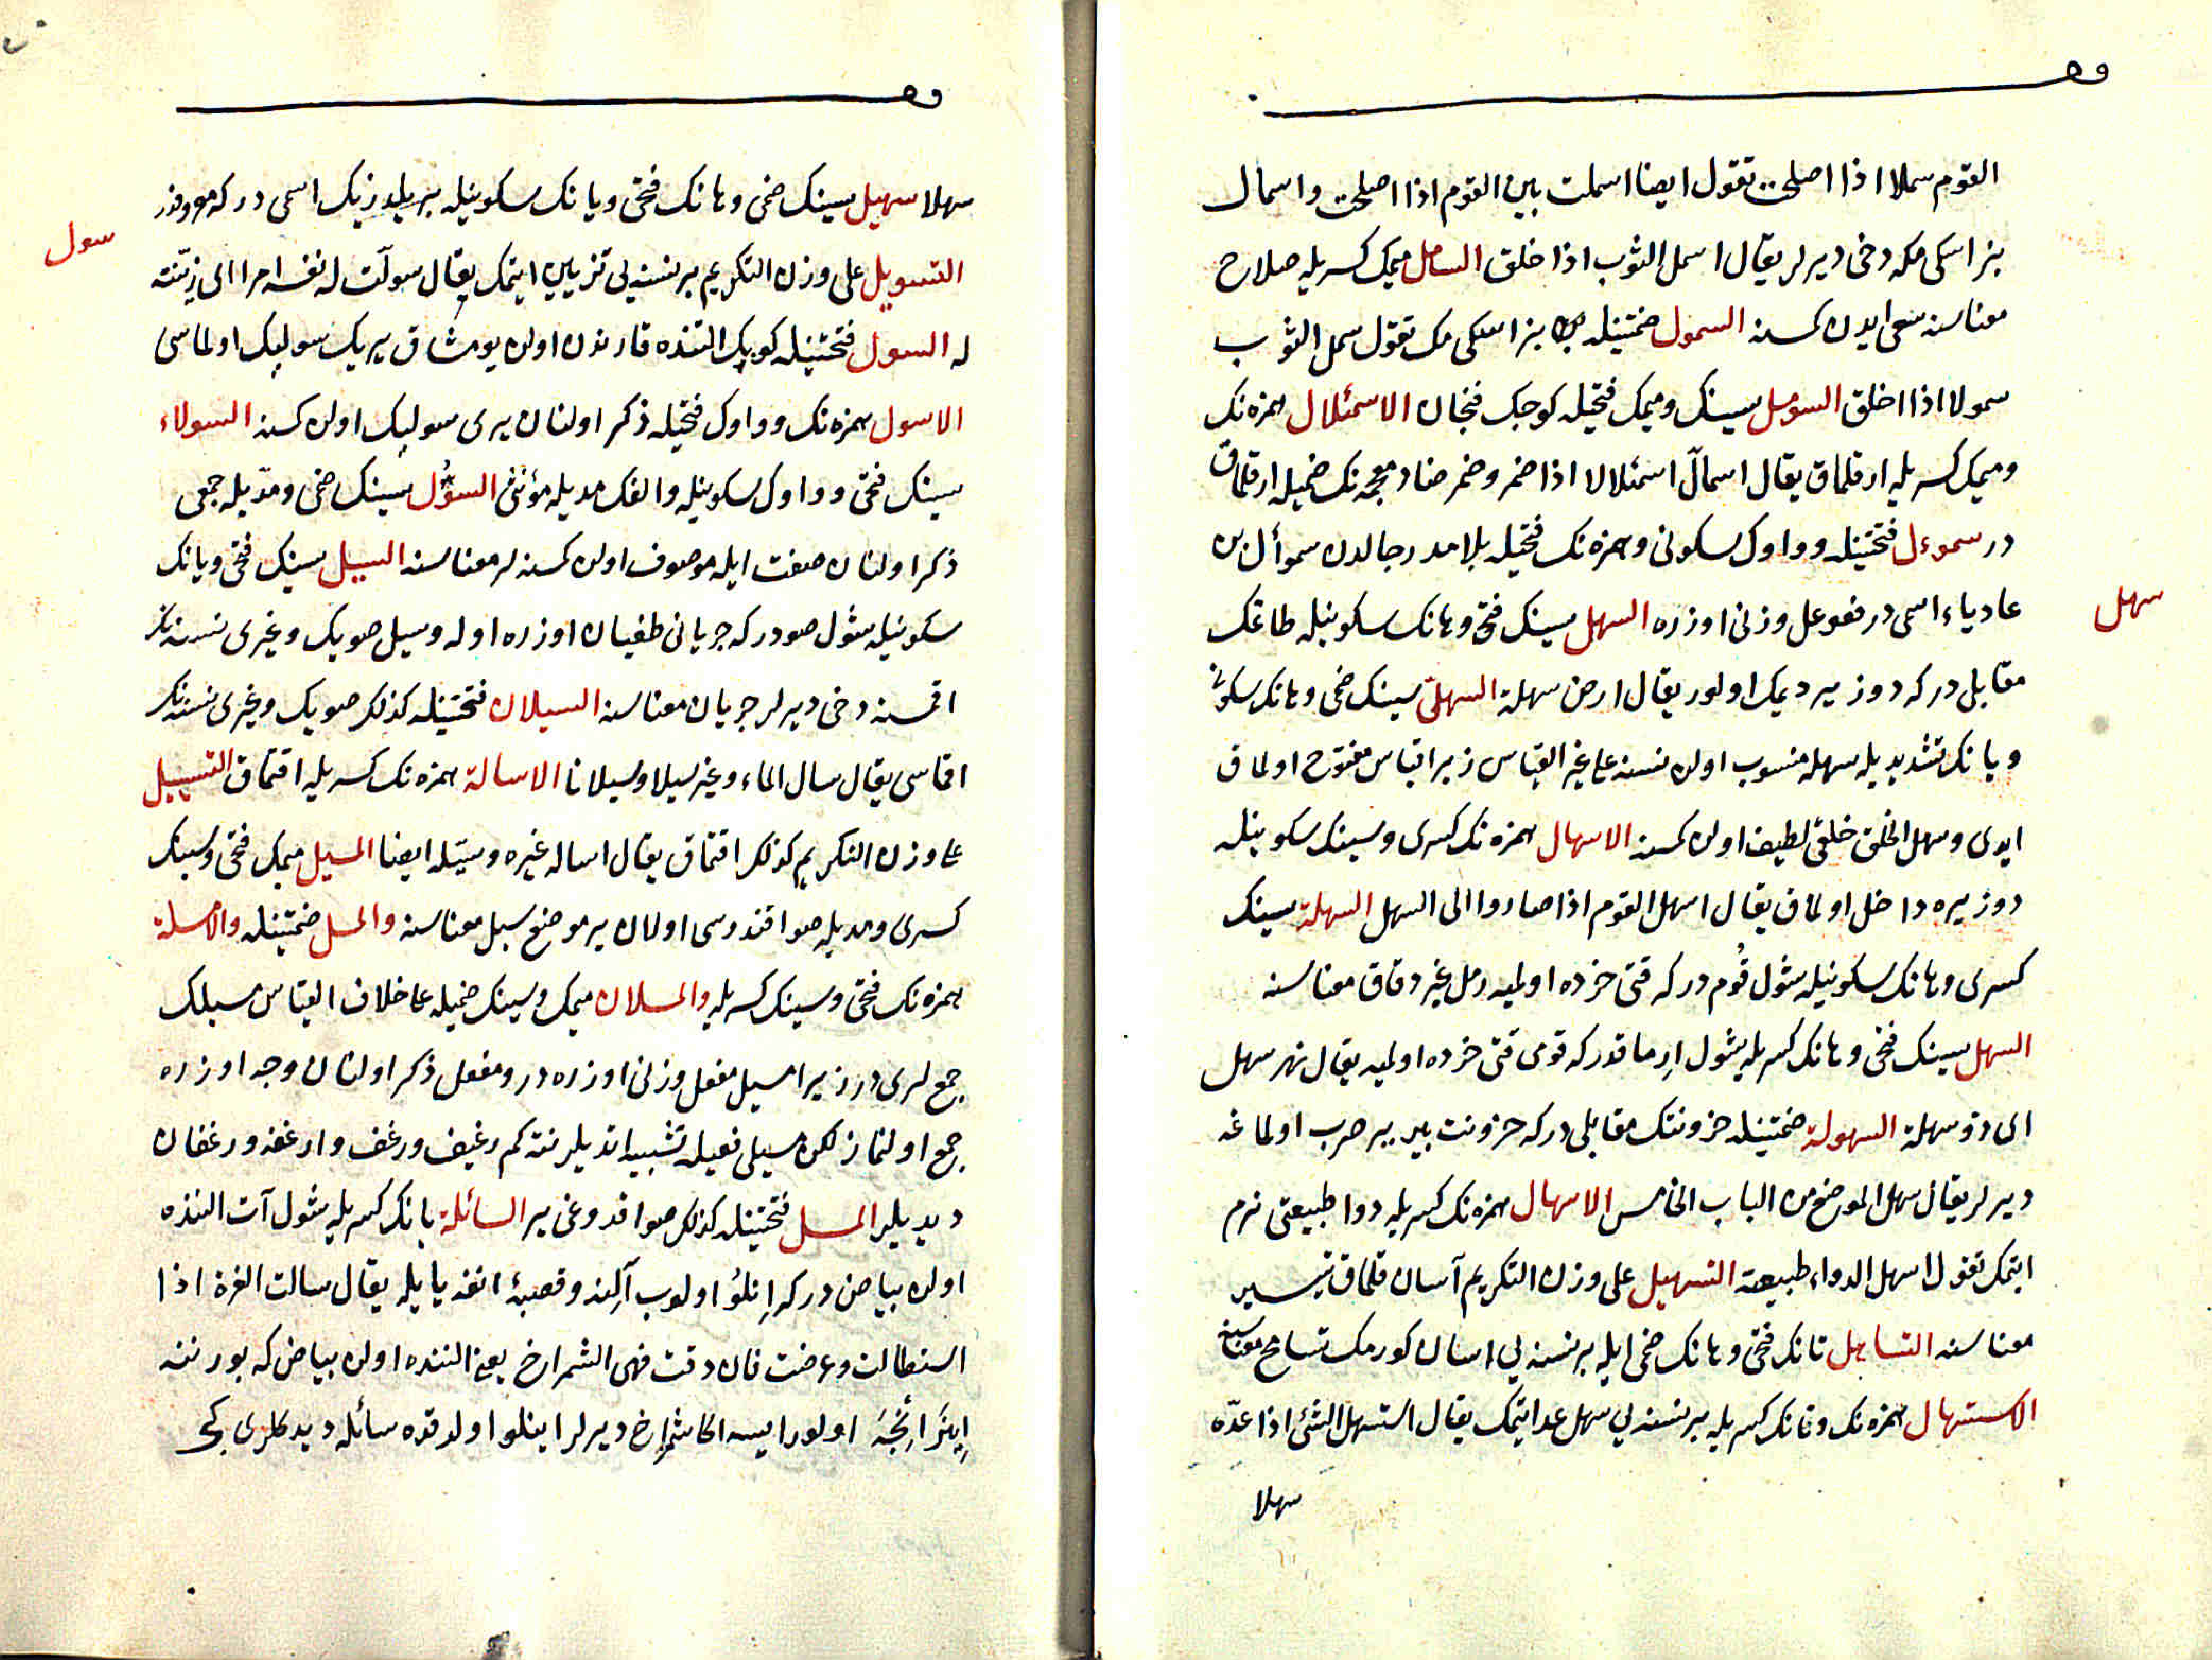 القوم سملا اذا اصلحت تقول ايضا اسملت بين القوم اذا اصلحت واسمال
بز اسكى مكه دخى ديرلر يقال اسمل الثوب اذا خلق السامل ميمك كسريله صلاح
معناسنه سعى ايدن كمسنه السمول ضمتينله بز اسكى مك تقول سمل الثوب
سمولا اذا اخلق السومل سينك وميمك فتحيله كوجك فنجان الاسمئلال همزه نك
وميمك كسريله ارقلماق يقال اسمأل اسمئلالا اذا ضمر وضمر ضاد معجمه نك ضميله ارقلماق
در سموءل فتحتينله وواوك سكونى وهمزه نك فتحيله بلا مد رجالدن سموأل بن
عادياء اسمى در فعوعل وزنى اوزره السهل سينك فتحى وهانك سكونيله طاغك
سهل
مقابلى در كه دوز ير ديمك اولور يقال ارض سهلة السهلى سينك ضمى وهانك سكونى
ويانك تشديديله سهله منسوب اولن نسنه على غير القياس زيرا قياس مفتوح اولماق
ايدى وسهل الخلق خلقى لطيف اولن كمسنه الاسهال همزه نك كسرى وسينك سكونيله
دوز يره داخل اولماق يقال اسهل القوم اذا صاروا الى السهل السهلة سينك
كسرى وهانك سكونيله شول قوم در كه قتى خرده اولميه رمل غير دقاق معناسنه
السهل سينك فتحى وهانك كسريله شول ارماقدر كه قومى قتى خرده اولميه يقال نهر سهل
اى ذو سهلة السهولة ضمتينله حزونتك مقابلى در كه حزونت بير ير صرب اولماغه
ديرلر يقال سهل الموضع من الباب الخامس الاسهال همزه نك كسريله دوا طبيعتى نرم
ايتمك تقول اسهل الدواء طبيعته التسهيل على وزن التكريم آسان قلماق تيسير
معناسنه التساهل تانك فتحى وهانك ضمى ايله بر نسنه يى اسان كورمك تسامح معناسنه
الاستسهال همزه نك وتانك كسريله بر نسنه يى سهل عد ايتمك يقال استسهل الشئ اذا عده
سهلا
سهلا سهيل سينك ضمى وهانك فتحى ويانك سكونيله بر يلدزيك اسمى در كه معروفدر
التسويل على وزن التكريم بر نسنه يى تزيين ايتمك يقال سولت له نفسه امرا اى زينته
سول
له السول فتحتينله كوبك التنده قارندن اولن يومشاق يريك سولبك اولماسى
الاسول همزه نك وواوك فتحيله ذكر اولنان يرى سولبك اولن كمسنه السولاء
سينك فتحى وواوك سكونيله والفك مديله مؤنثى السؤل سينك ضمى ومديله جمعى
ذكر اولنان صفت ايله موصوف اولن كمسنه لر معناسنه السيل سينك فتحى ويانك
سكونيله شول صودر كه جريانى طغيان اوزره اوله وسيل صويك وغيرى نسنه نك
اقمسنه دخى ديرلر جريان معناسنه السيلان فتحتينله كذلك صويك وغيرى نسنه نك
اقماسى يقال سال الماء وغيره سيلا وسيلانا الاسالة همزه نك كسريله اقتماق التسييل
على وزن التكريم كذلك اقتماق يقال اساله غيره وسيله ايضا المسيل ميمك فتحى وسينك
كسرى ومديله صو اقندوسى اولان ير موضع سيل معناسنه والمسل ضمتينله والامسلة
همزه نك فتحى وسينك كسريله والمسلان ميمك وسينك ضميله على خلاف القياس مسيلك
جمع لرى در زيرا مسيل مفعل وزنى اوزره در ومفعل ذكر اولنان وجه اوزره
جمع اولنماز لكن مسيلى فعيله تشبيه اتديلر نته كم رغيف ورغف وارغفه ورغفان
ديديلر المسل فتحتينله كذلك صو اقدوغى ير السائلة يانك كسريله شول آت النده
اولن بياض در كه اينلو اولوب آلنه وقصبۀ انفه يايله يقال سالت الغرة اذا
استطالت وعرضت فان دقت فهى الشمراخ يعنى النده اولن بياض كه بورننه
اينر انجه اولورايسه اكا شمراخ ديرلر اينلو اولدقده سائله ديدكلرى كبى